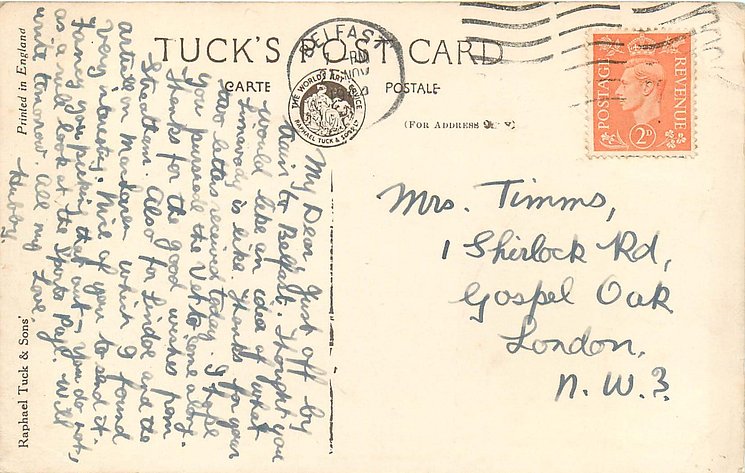 TUCK'S POST CARD
CARTE
POSTALE
(FOR ADDRESS
BELFAST
NOV
THE WORLD'S ART SERVICE
RAPHAEL TUCK & SONS LTD
POSTAGE
REVENUE
2D
Printed in England
Raphael Tuck & Sons'
My Dear, Just off by
train to Belfast. Thought you
would like an idea of what
is like. Thanks for your
two letters received today. I hope
you pursued the Vet to come along
Thanks for the good wishes from
Streatham. Also for and the
article on which I found
very interesting. Nice of you to send it.
Fancy you picking that out – You do not,
as a rule look at the Sports Page. Will
write tomorrow. All my Love,
Hubby.
Mrs. Timms,
1 Sherlock Rd,
Gospel Oak
London,
N.W.3